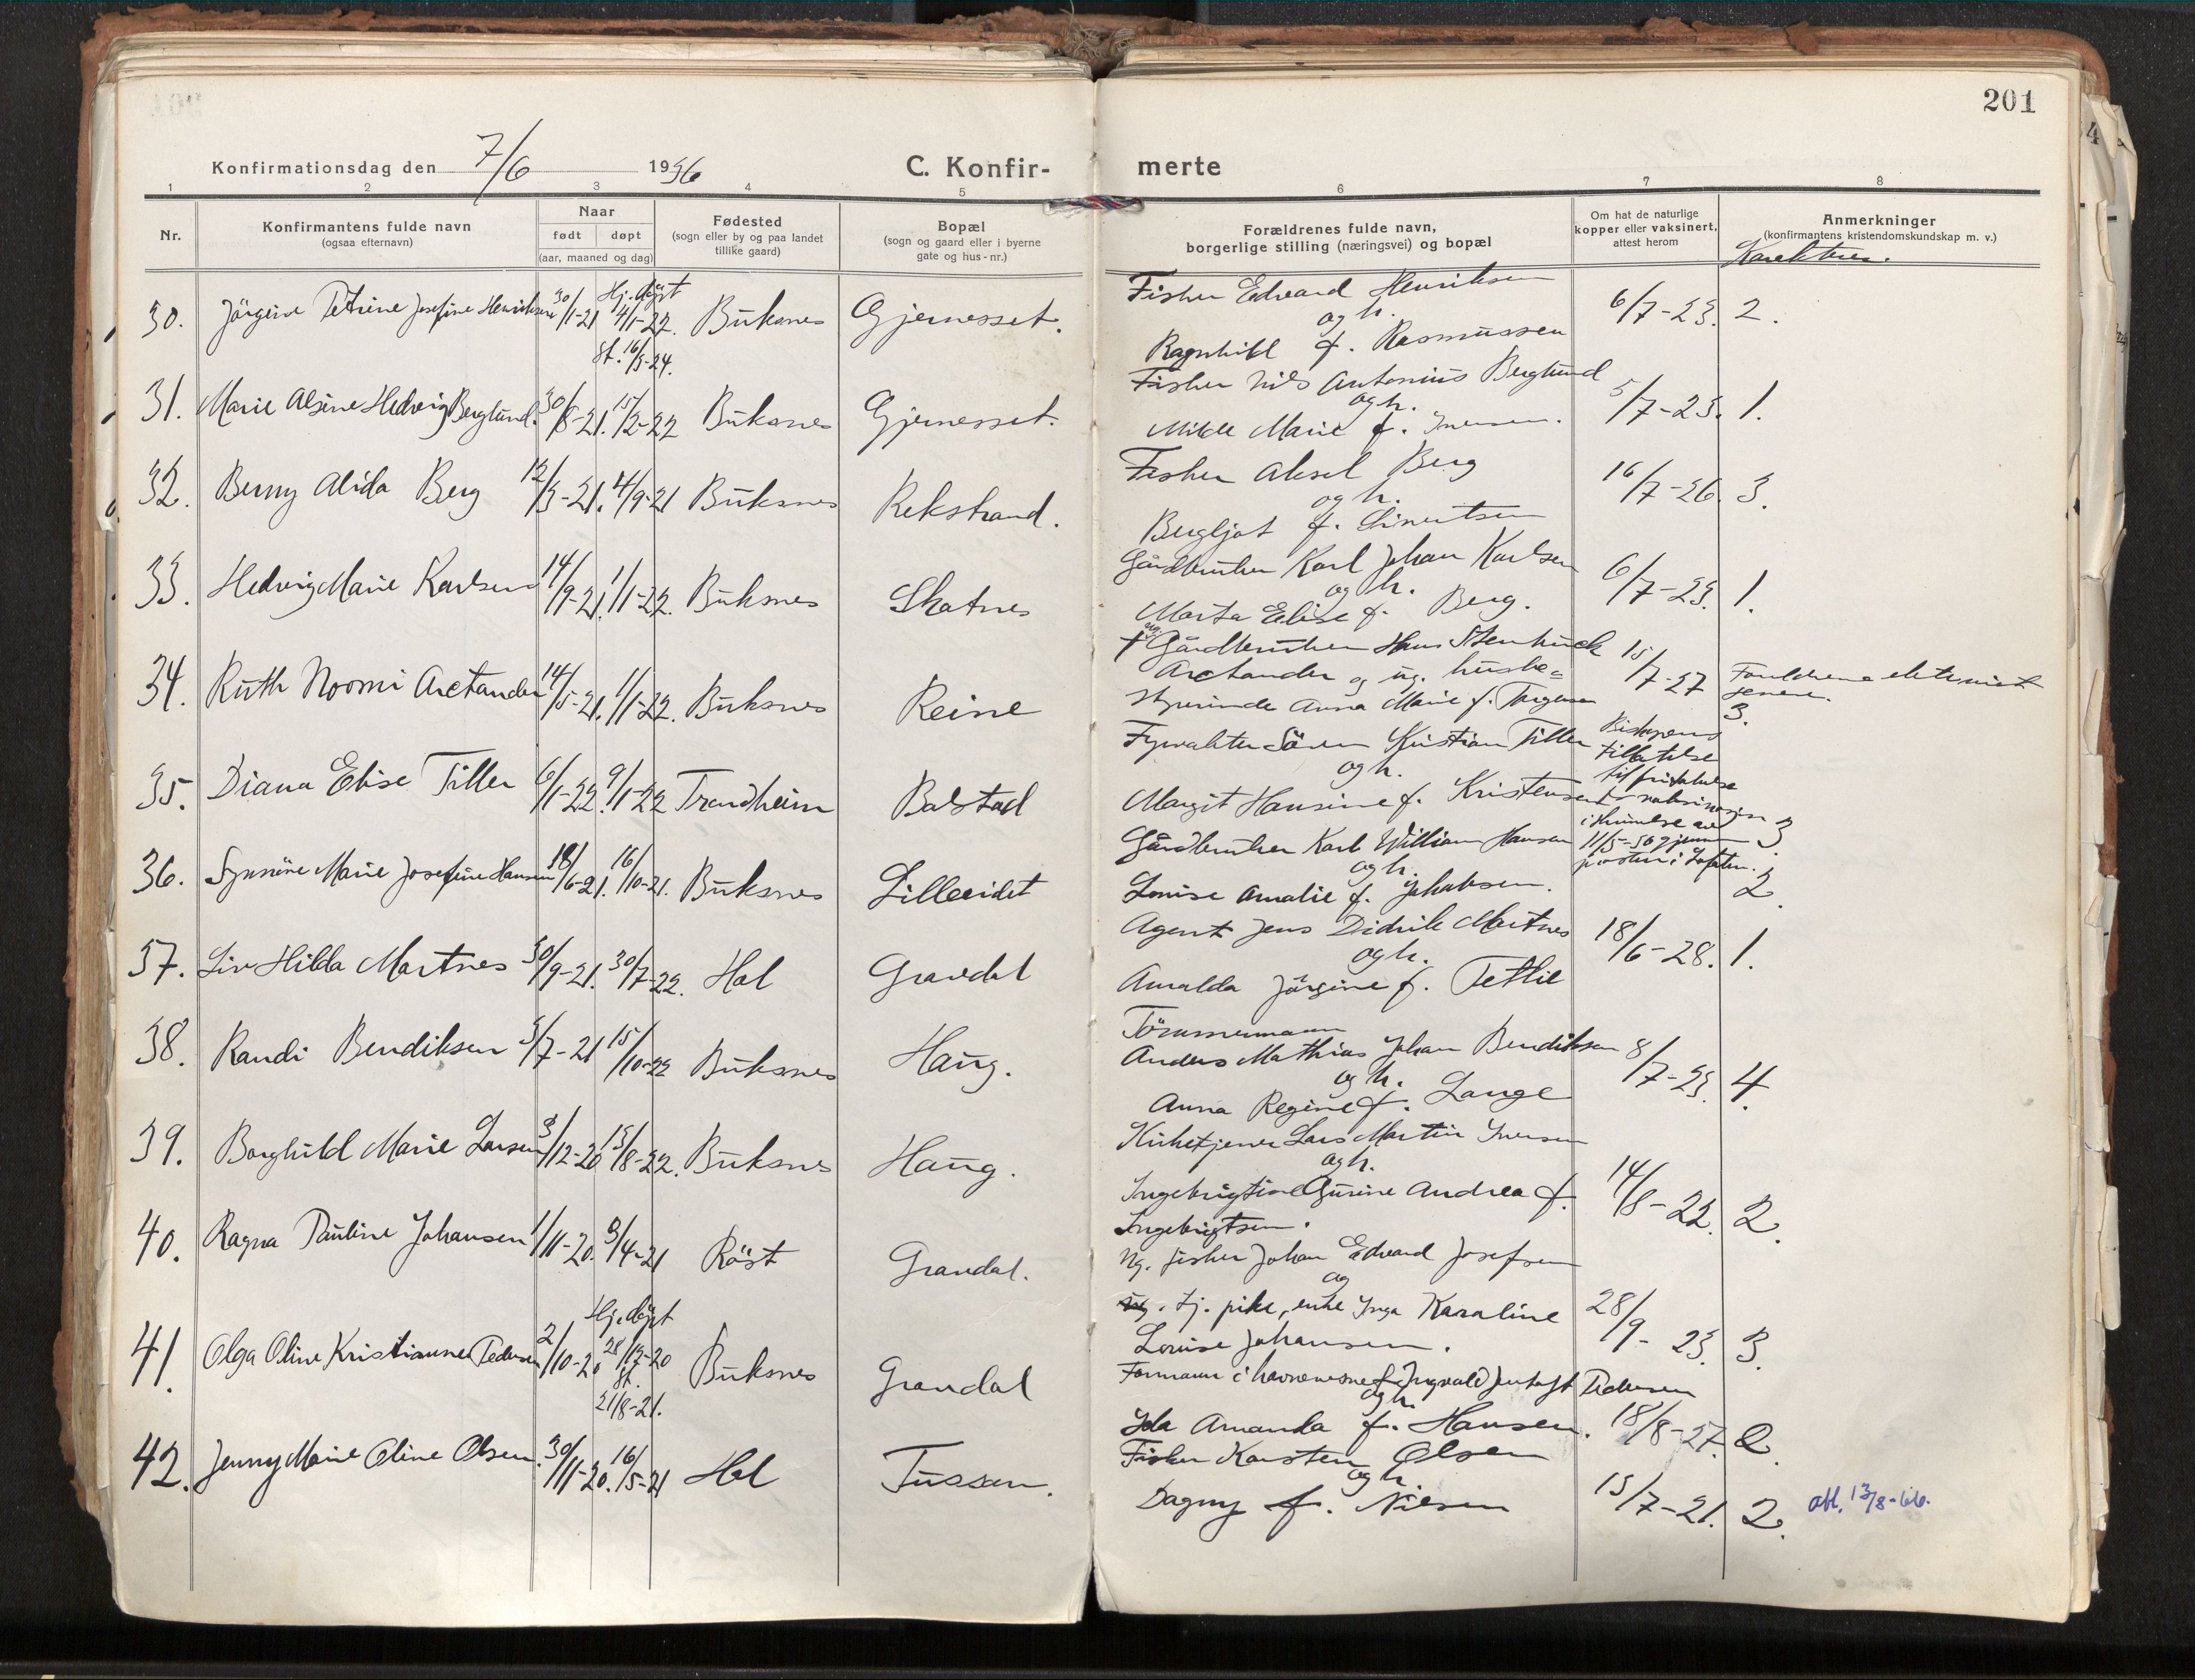 201
Konfirmationsdag den 7/6 1936 C. Konfir- merte
1 2 3 4 5 6 7 8
Nr.
Konfirmantens fulde navn
(ogsaa efternavn)
Naar
født døpt
(aar, maaned og dag)
Fødested
(sogn eller by og paa landet
tillike gaard)
Bopæl
(sogn og gaard eller i byerne
gate og hus-nr.)
Forældrenes fulde navn,
borgerlige stilling (næringsvei) og bopæl
Om hat de naturlige
kopper eller vaksinert,
attest herom
Anmerkninger
(konfirmantens kristendomskundskap m. v.)
Karakterer.
30. Jörgine Petrine Josefine Henriksen 30/1-21 Hj. døpt 4/1-22. St. 16/3-24. Buksnes Gjernesset.
Fisker Edvard Henriksen
og h.
Ragnhild f. Rasmussen
6/7-23. 2.
31. Marie Alsine Hedvig Berglund. 30/8-21. 15/2-22 Buksnes Gjernesset.
Fisker Nils Antonius Berglund
og h.
Milde Marie f. Iversen.
5/7-23. 1.
32. Berny Alida Berg 12/3-21. 4/9-21 Buksnes Rekstrand.
Fisker Aksel Berg
og h.
Bergljot f. Sivertsen
16/7-26. 3.
33. Hedvig Marie Karlsen 14/9-21. 1/1-22. Buksnes Skatnes
Gårdbruker Karl Johan Karlsen
og h.
Marta Elise f. Berg.
6/7-23. 1.
34. Ruth Noomi Arctander 14/5-21. 1/1-22. Buksnes Reine
ug.
† Gårdbruker Hans Stenbuck
Arctander og ug. husbe=
styrerinde Anna Marie f. Torgersen
15/7-27
Foreldrene
3.
35. Diana Elise Tiller 6/1-22. 9/1-22 Trondheim Balstad
Fyrvakter Sören Kristian Tiller
og h.
Margit Hansine f. Kristensen
Biskopens
tillatelse
til fritakelse
vaksinasjon
i skrivelse av
11/5-36 gjennem
posten i Lofoten.
3.
36. Synnöve Marie Josefine Hansen 18/6-21. 16/10-21. Buksnes Lilleeidet
Gårdbruker Karl William Hansen
og h.
Lovise Amalie f. Jakobsen.
2.
37. Liv Hilda Martnes 30/9-21. 30/7-22. Hol Gravdal
Agent Jens Didrik Martnes
og h.
Amalda Jörgine f. Tettlie
18/6-28. 1.
38. Randi Bendiksen 3/7-21 15/10-22 Buksnes Haug.
Tömmermann
Anders Mathias Johan Bendiksen
og h.
Anna Regine f. Lange
8/7-23. 4.
39. Borghild Marie Larsen 3/12-20 13/8-22. Buksnes Haug.
Kirketjener Lars Martin Iversen
og h.
Ingebrigtine Gurine Andrea f.
Ingebrigtsen.
14/8-22. 2.
40. Ragna Pauline Johansen 1/11-20. 3/4-21 Röst Gravdal.
Ug. fisker Johan Edvard Josefsen
og
tj. pike, enke Inga Karoline
Lovise Johansen.
28/9-23. 3.
41. Olga Oline Kristianne Pedersen 2/10-20 Hj. døpt 28/12-20 St. 21/8-21. Buksnes Gravdal
Formann i havnevesnet Ingvald Jentoft Pedersen
og h.
Ida Amanda f. Hansen.
18/8-27. 2.
42. Jenny Marie Oline Olsen. 30/11-20. 16/5-21 Hol Tussan.
Fisker Karsten Olsen
og h.
Dagny f. Nilsen
15/7-21. 2. att. 13/8-66.